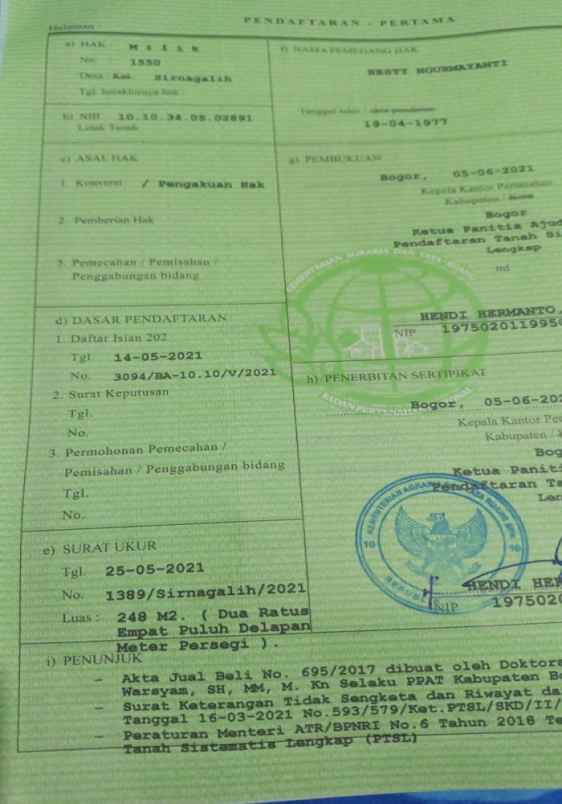 Halaman :
PENDAFTARAN - PERTAMA
a) HAK : Milik
No. : 1550
Desa/ Kel. Sirnagalih
Tgl. berakhirnya hak :
b) NIB 10.10.34.05.02891
Letak Tanah
c) ASAL HAK
1. Konversi / Pengakuan Hak
2. Pemberian Hak
3. Pemecahan / Pemisahan /
Penggabungan bidang
d) DASAR PENDAFTARAN
1. Daftar Isian 202
Tgl. 14-05-2021
No. 3094/BA-10.10/V/2021
2. Surat Keputusan
Tgl.
No.
3. Permohonan Pemecahan /
Pemisahan / Penggabungan bidang
Tgl.
No.
e) SURAT UKUR
Tgl. 25-05-2021
No. 1389/Sirnagalih/2021
Luas : 248 M2. ( Dua Ratus
Empat Puluh Delapan
Meter Persegi ).
f) NAMA PEMEGANG HAK
HESTY NOURMAYANTI
Tanggal lahir /
19-04-1977
g) PEMBUKUAN
Bogor, 05-06-2021
Kepala Kantor Pertanahan
Kabupaten /
Bogor
Ketua Panitia Ajud
Pendaftaran Tanah Si
Lengkap
ttd
HENDI HERMANTO,
NIP 1975020119950
h) PENERBITAN SERTIPIKAT
Bogor, 05-06-202
Kepala Kantor Per
Kabupaten /
Bog
Ketua Paniti
Pendaftaran Ta
Len
HENDI HER
NIP 1975020
i) PENUNJUK
- Akta Jual Beli No. 695/2017 dibuat oleh Doktora
Warsyam, SH, MM, M. Kn Selaku PPAT Kabupaten Bo
- Surat Keterangan Tidak Sengketa dan Riwayat da
Tanggal 16-03-2021 No.593/579/Ket.PTSL/SKD/II/
- Peraturan Menteri ATR/BPNRI No.6 Tahun 2018 Te
Tanah Sistematis Lengkap (PTSL)